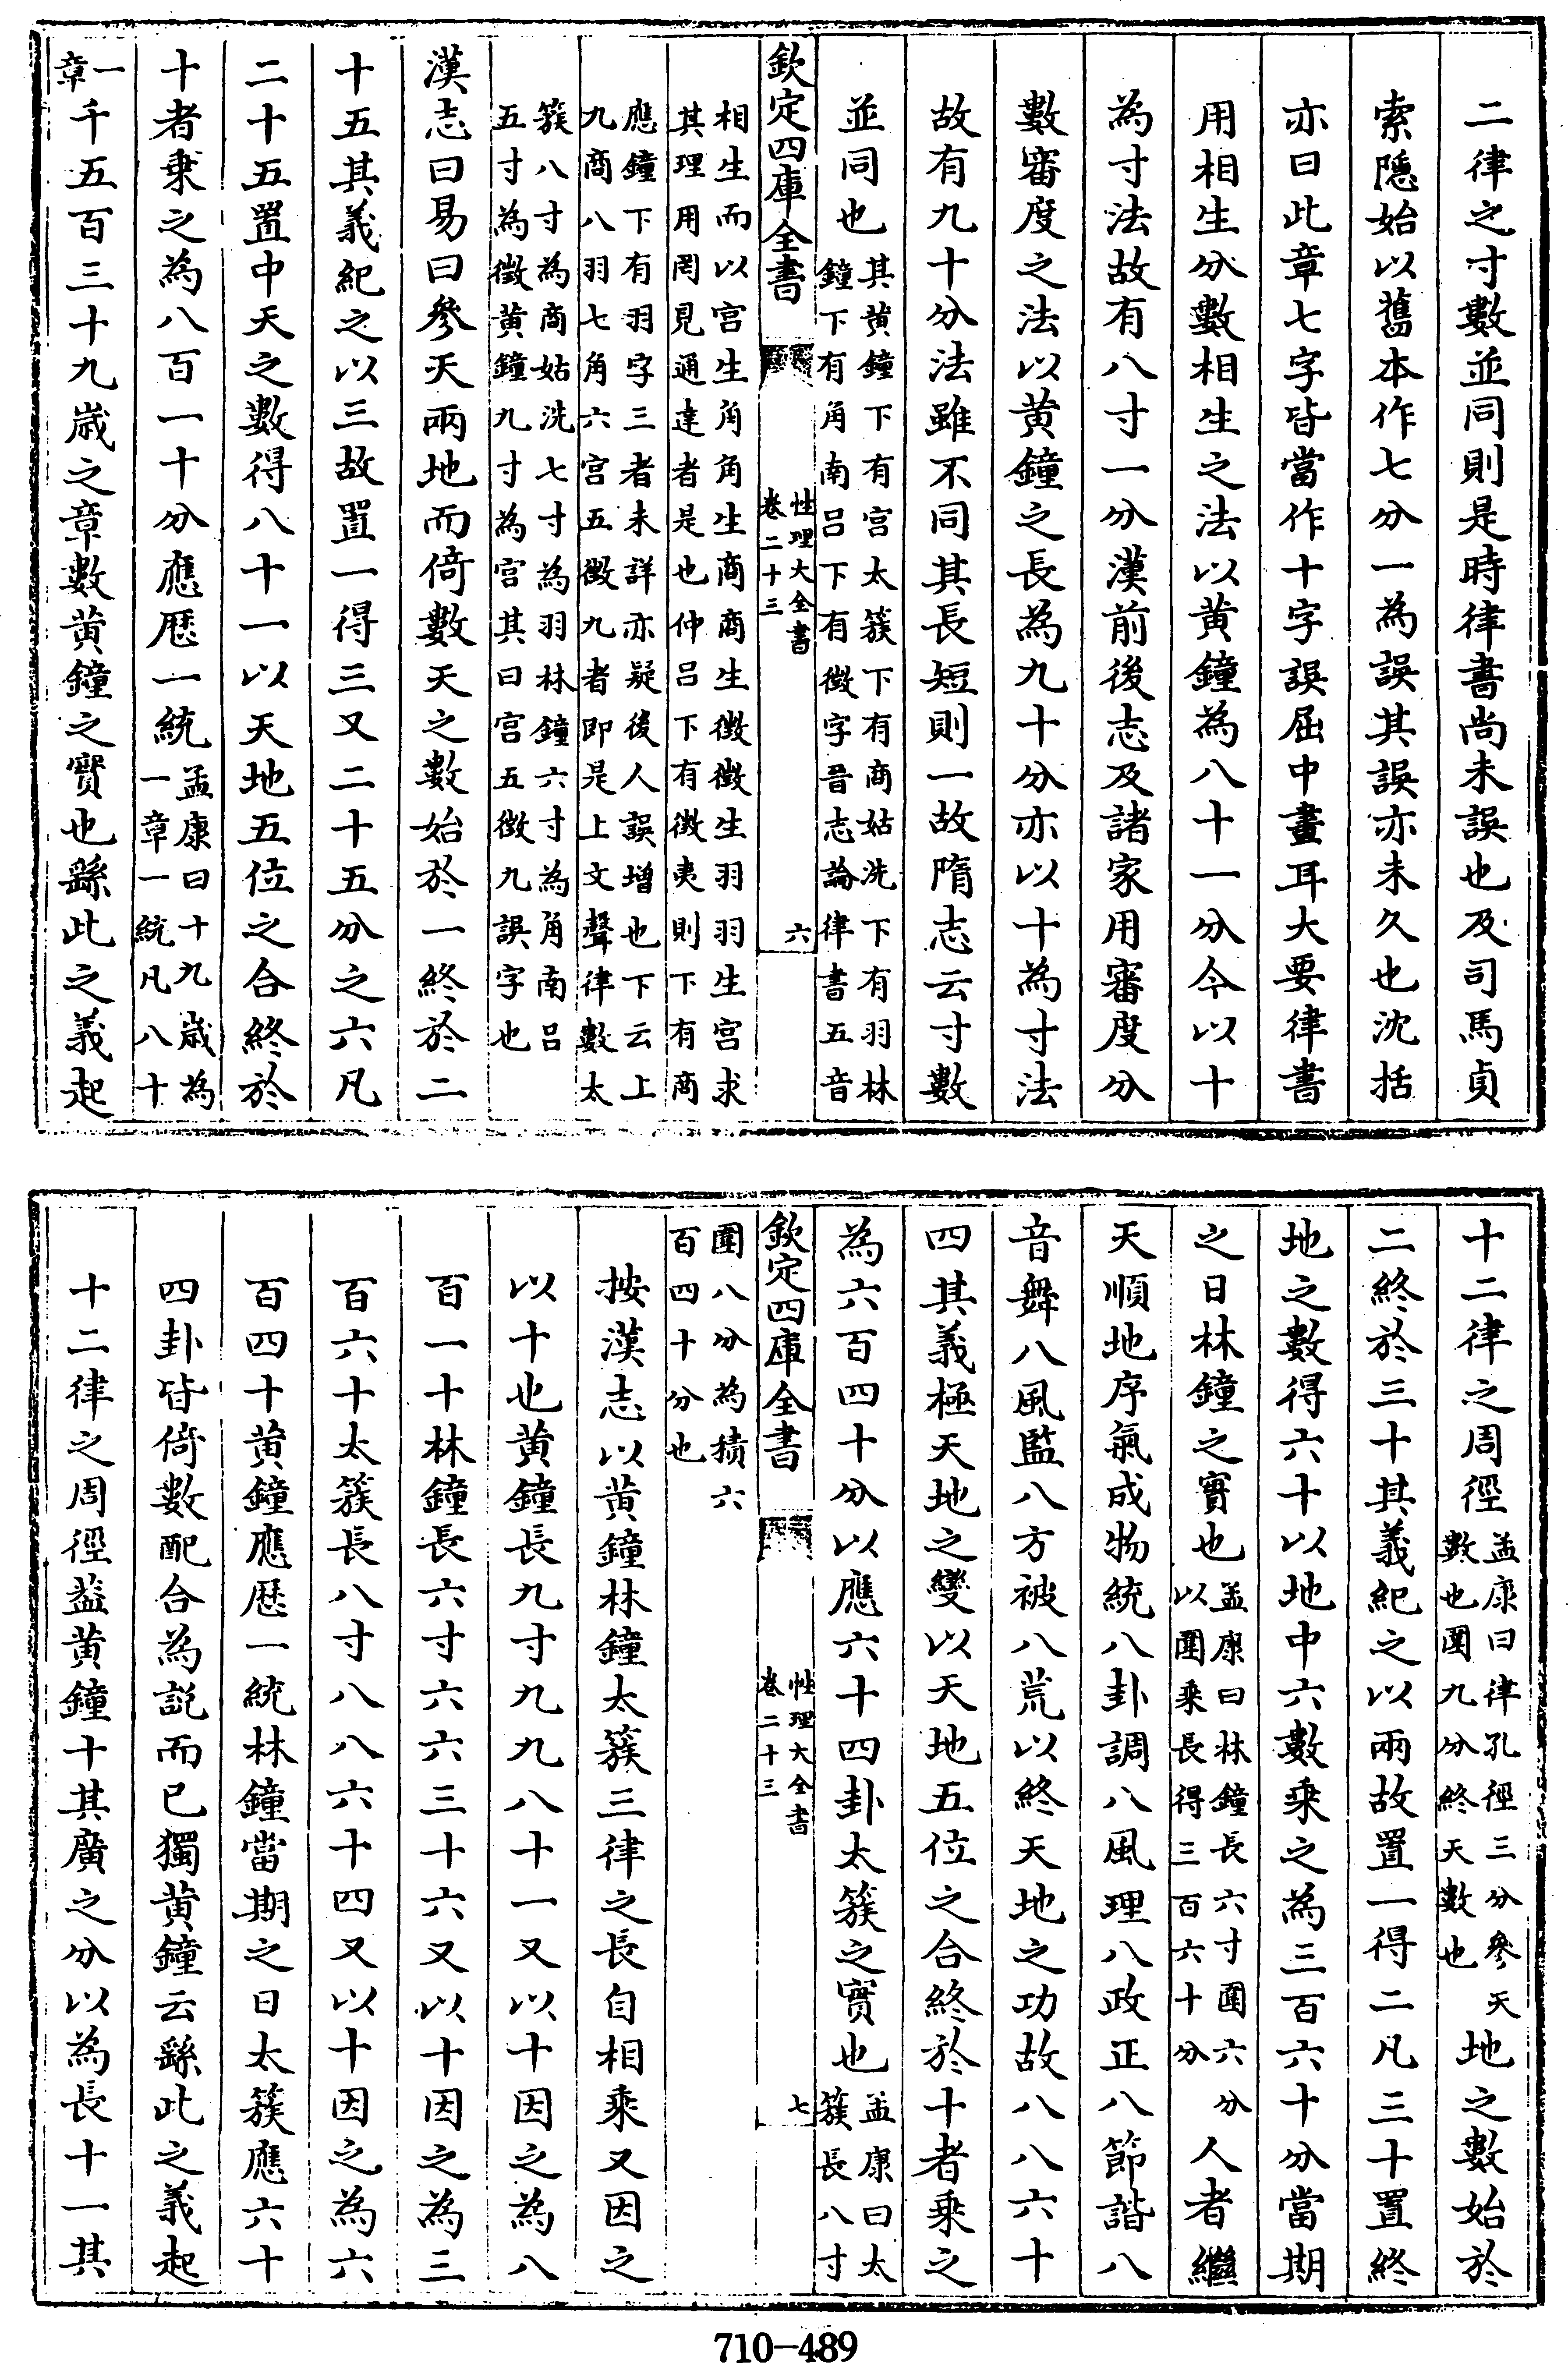 二律之寸數並同則是時律書尚未誤也及司馬貞
索隱始以舊本作七分一為誤其誤亦未久也沈括
亦曰此章七字皆當作十字誤屈中畫耳大要律書
用相生分數相生之法以黄鐘為八十一分今以十
為寸法故有八寸一分漢前後志及諸家用審度分
數審度之法以黄鐘之長為九十分亦以十為寸法
故有九十分法雖不同其長短則一故隋志云寸數
並同也其黄鐘下有宫太簇下有商姑洗下有羽林
鐘下有角南吕下有徵字晉志論律書五音
欽定四庫全書
性理大全書
卷二十三
六
相生而以宫生角角生商商生徵徵生羽羽生宫求
其理用罔見通達者是也仲吕下有徵夷則下有商
應鐘下有羽字三者未詳亦疑後人誤增也下云上
九商八羽七角六宫五徵九者即是上文聲律數太
簇八寸為商姑洗七寸為羽林鐘六寸為角南吕
五寸為徵黄鐘九寸為宫其曰宫五徵九誤字也
漢志曰易曰參天兩地而倚數天之數始於一終於二
十五其義紀之以三故置一得三又二十五分之六凡
二十五置中天之數得八十一以天地五位之合終於
十者乗之為八百一十分應厯一統孟康曰十九歲為
一章一統凡八十
一章千五百三十九歲之章數黄鐘之實也繇此之義起
十二律之周徑孟康曰律孔徑三分參天
數也圍九分終天數也地之數始於
二終於三十其義紀之以兩故置一得二凡三十置終
地之數得六十以地中六數乗之為三百六十分當期
之日林鐘之實也孟康曰林鐘長六寸圍六分
以圍乗長得三百六十分人者繼
天順地序氣成物統八卦調八風理八政正八節諧八
音舞八風監八方被八荒以終天地之功故八八六十
四其義極天地之變以天地五位之合終於十者乗之
為六百四十分以應六十四卦太簇之實也孟康曰太
簇長八寸
欽定四庫全書
性理大全書
卷二十三
七
圍八分為積六
百四十分也
按漢志以黄鐘林鐘太簇三律之長自相乘又因之
以十也黄鐘長九寸九九八十一又以十因之為八
百一十林鐘長六寸六六三十六又以十因之為三
百六十太簇長八寸八八六十四又以十因之為六
百四十黄鐘應厯一統林鐘當期之日太簇應六十
四卦皆倚數配合為説而已獨黄鐘云繇此之義起
十二律之周徑葢黄鐘十其廣之分以為長十一其
710-489